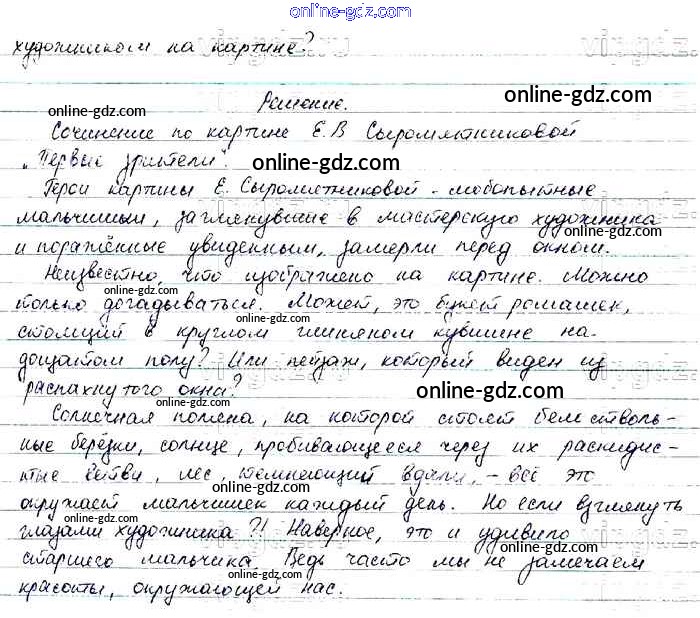 online-gdz.com
художником на картине?
Решение.
Сочинение по картине Е.В Сыромятниковой
„Первые зрители".
Герои картины Е. Сыромятниковой - любопытные
мальчишки, заглянувшие в мастерскую художника
и поражённые увиденным, замерли перед окном.
Неизвестно, что изображено на картине. Можно
только догадываться. Может, это букет ромашек,
стоящий в круглом глиняном кувшине на
дощатом полу? Или пейзаж, который виден из
распахнутого окна?
Солнечная поляна, на которой стоят белостволь-
ные берёзки, солнце, пробивающееся через их раскидис-
тые ветви, лес, темнеющий вдали, - всё это
окружает мальчишек каждый день. Но если взглянуть
глазами художника?! Наверное, это и удивило
старшего мальчика. Ведь часто мы не замечаем
красоты, окружающей нас.